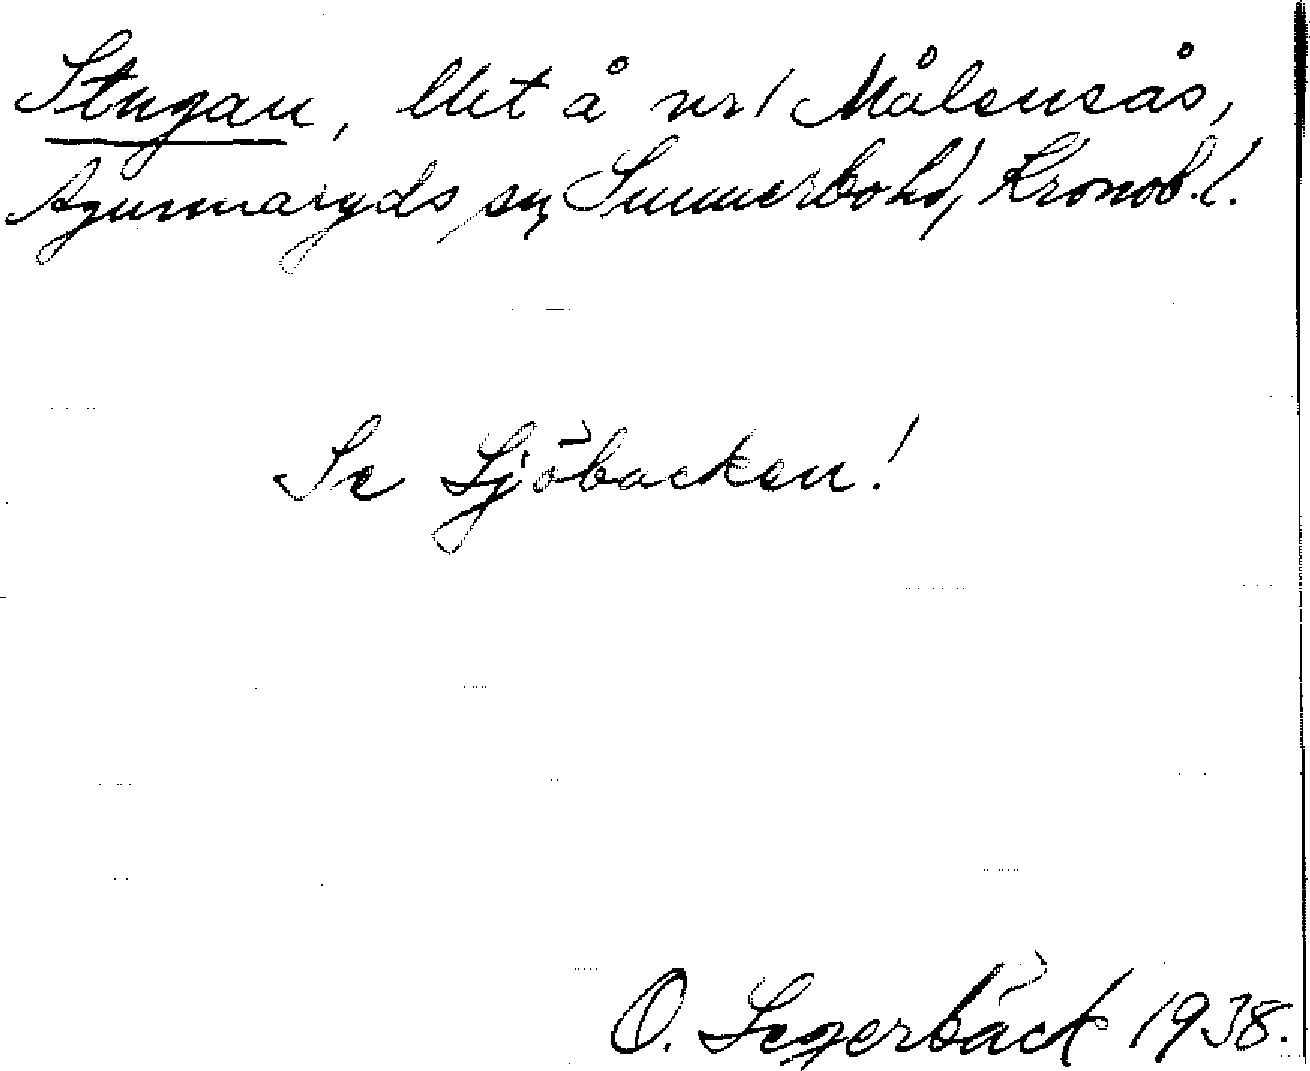 Stugan, lht å nr 1 Målensås,
Agunnaryds sn, Sunnerbo hd, Kronob. l.
Se Sjöbacken!
O. Segerbäck 1938.